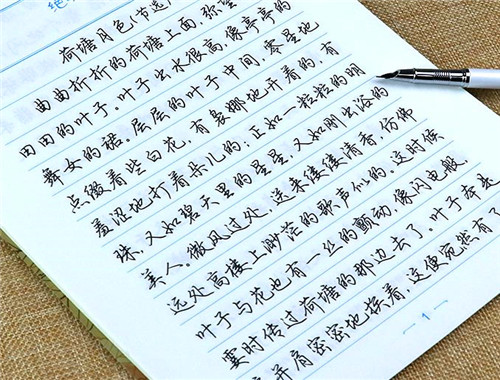 荷塘月色(节选
曲曲折折的荷塘上面,弥望
田田的叶子。叶子出水很高,像亭亭的
舞女的裙。层层的叶子中间,零星地
点缀着些白花,有袅娜地开着的,有
羞涩地打着朵儿的;正如一粒粒的明
珠,又如碧天里的星星,又如刚出浴的
美人。微风过处,送来缕缕清香,仿佛
远处高楼上渺茫的歌声似的。这时候
叶子与花也有一丝的颤动,像闪电般,
霎时传过荷塘的那边去了。叶子本是
肩并肩密密地挨着,这便宛然有了
— 1 —